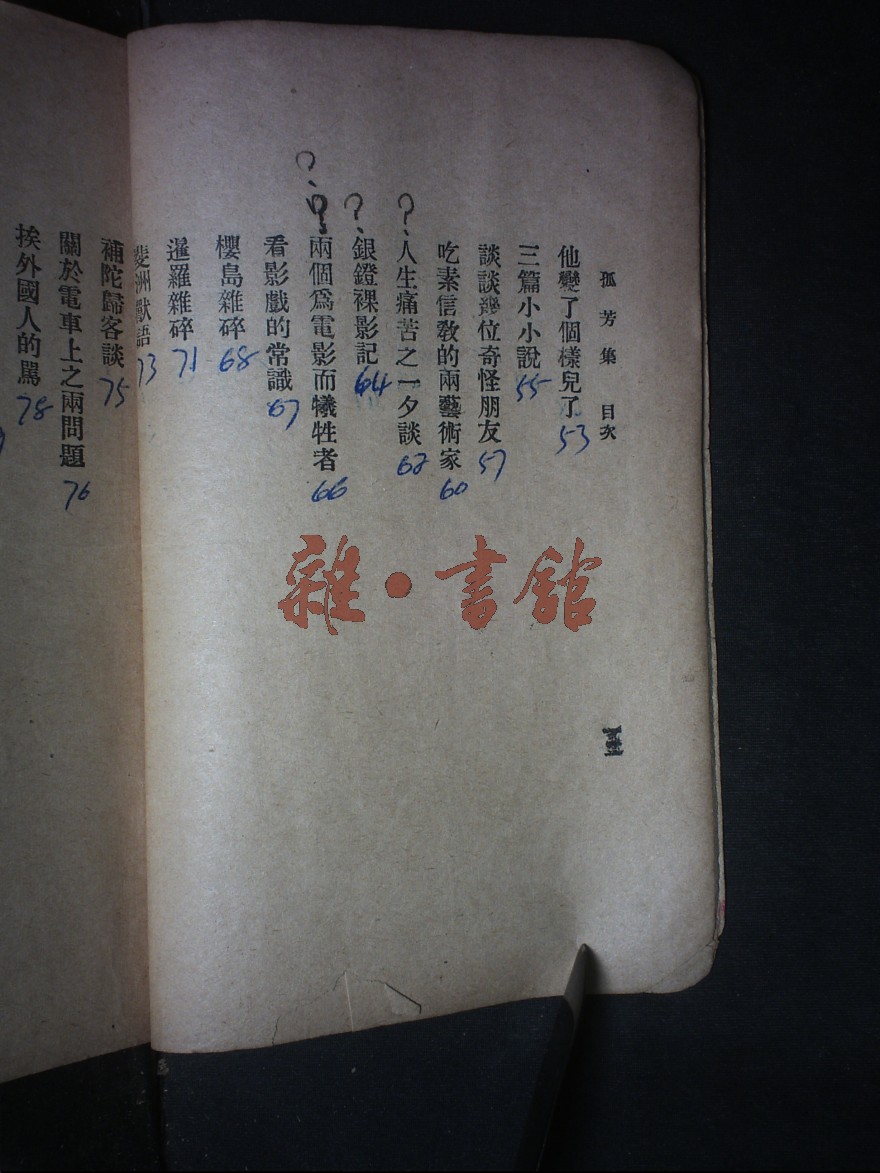 孤芳集 目次
他變了個樣兒了 53
三篇小小說 55
談談幾位奇怪朋友 57
吃素信敎的兩藝術家 60
?、人生痛苦之一夕談 62
?、銀鐙裸影記 64
?、?、兩個爲電影而犧牲者 66
看影戲的常識 67
櫻島雜碎 68
暹羅雜碎 71
洲獸語 73
補陀歸客談 75
關於電車上之兩問題 76
挨外國人的罵 78
雜·書館